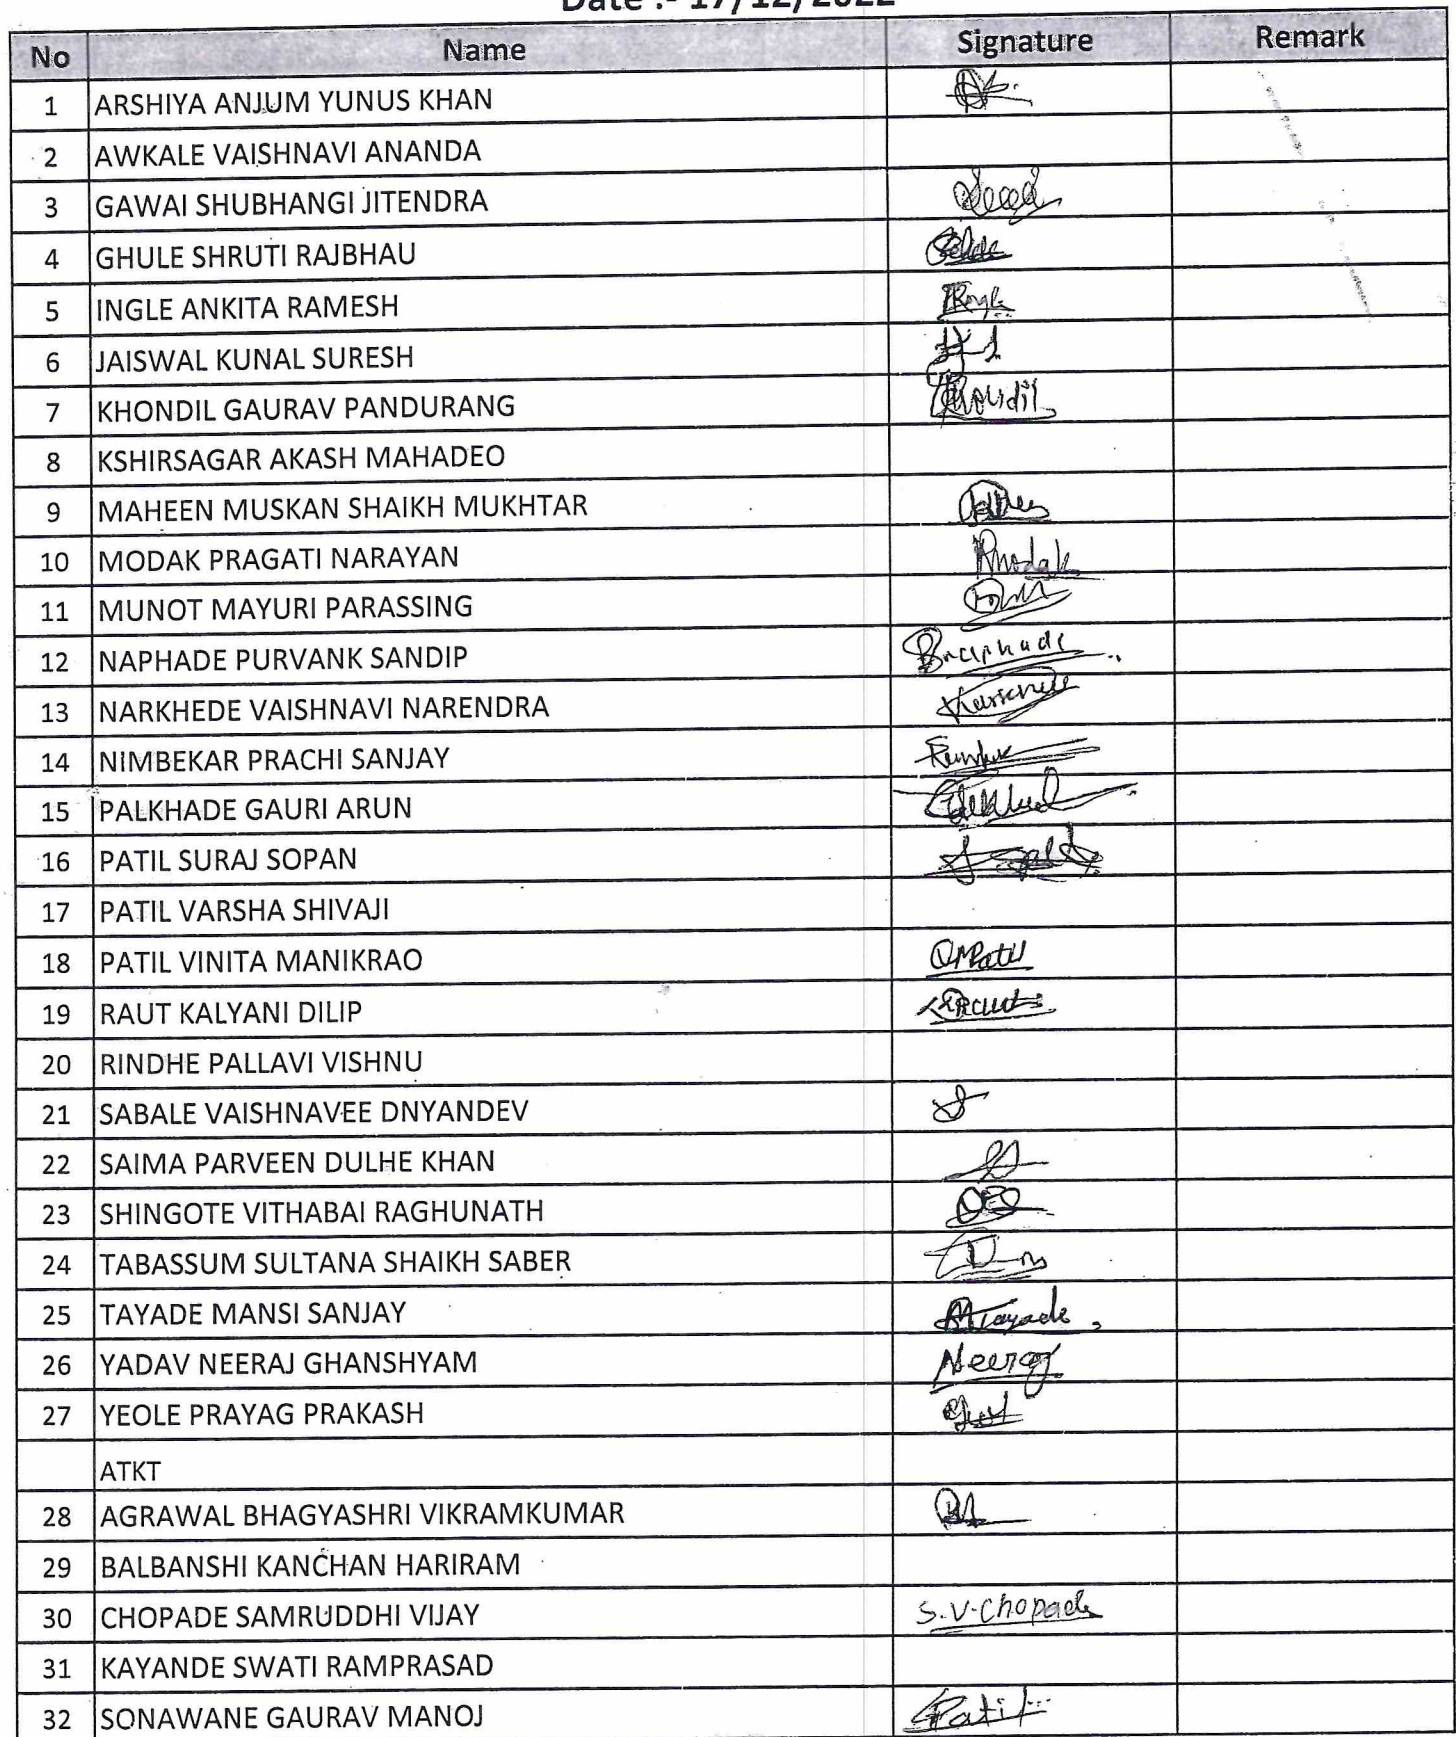 Date :- 17/12/2022
No Name Signature Remark
1 ARSHIYA ANJUM YUNUS KHAN
2 AWKALE VAISHNAVI ANANDA
3 GAWAI SHUBHANGI JITENDRA
4 GHULE SHRUTI RAJBHAU
5 INGLE ANKITA RAMESH
6 JAISWAL KUNAL SURESH
7 KHONDIL GAURAV PANDURANG Khondil
8 KSHIRSAGAR AKASH MAHADEO
9 MAHEEN MUSKAN SHAIKH MUKHTAR
10 MODAK PRAGATI NARAYAN Pmodak
11 MUNOT MAYURI PARASSING
12 NAPHADE PURVANK SANDIP Pnaphade
13 NARKHEDE VAISHNAVI NARENDRA
14 NIMBEKAR PRACHI SANJAY
15 PALKHADE GAURI ARUN
16 PATIL SURAJ SOPAN
17 PATIL VARSHA SHIVAJI
18 PATIL VINITA MANIKRAO VMPatil
19 RAUT KALYANI DILIP
20 RINDHE PALLAVI VISHNU
21 SABALE VAISHNAVEE DNYANDEV
22 SAIMA PARVEEN DULHE KHAN
23 SHINGOTE VITHABAI RAGHUNATH
24 TABASSUM SULTANA SHAIKH SABER
25 TAYADE MANSI SANJAY MTayade
26 YADAV NEERAJ GHANSHYAM Neeraj
27 YEOLE PRAYAG PRAKASH
ATKT
28 AGRAWAL BHAGYASHRI VIKRAMKUMAR
29 BALBANSHI KANCHAN HARIRAM
30 CHOPADE SAMRUDDHI VIJAY S.V.Chopade
31 KAYANDE SWATI RAMPRASAD
32 SONAWANE GAURAV MANOJ